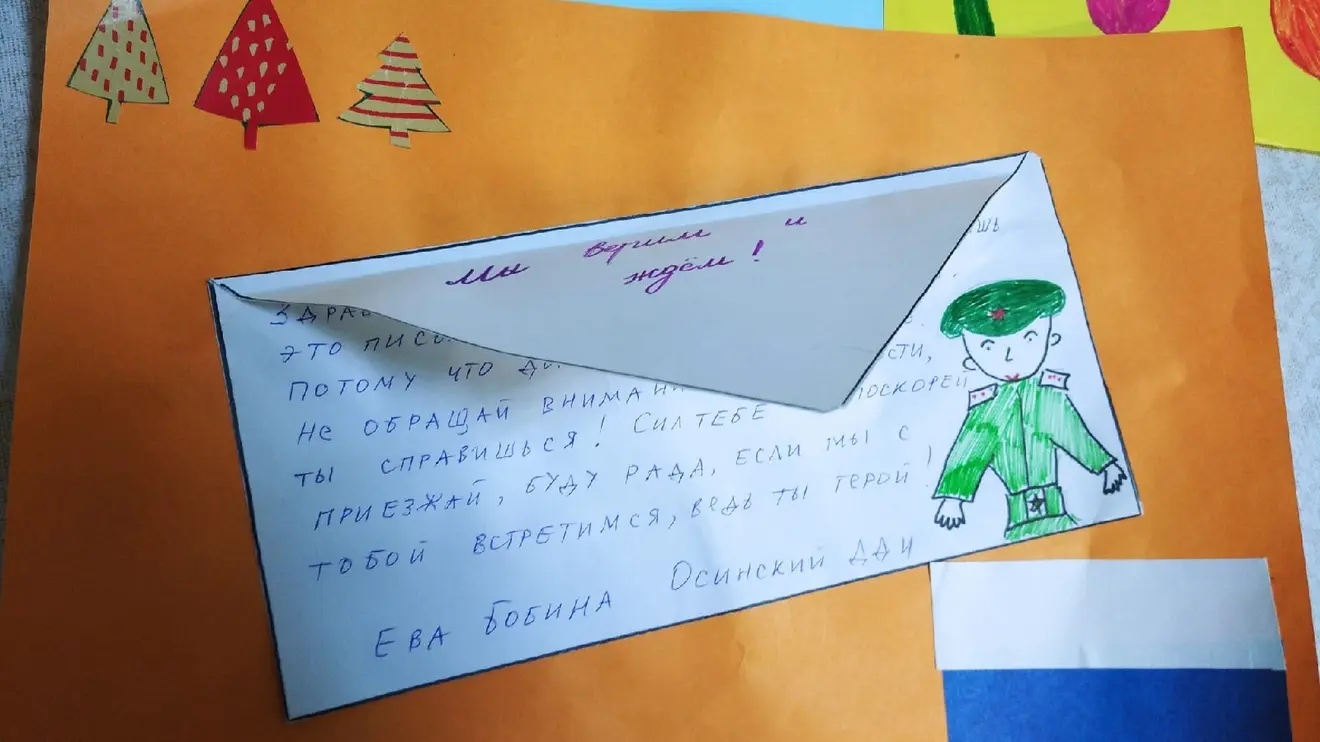 Мы верим и
ждём!
шь
ЗДРАВ
ЭТО ПИСЬ
ПОТОМУ ЧТО СТИ,
НЕ ОБРАЩАЙ ВНИМАНИ ПОСКОРЕЙ
ТЫ СПРАВИШЬСЯ! СИЛ ТЕБЕ
ПРИЕЗЖАЙ, БУДУ РАДА, ЕСЛИ МЫ С
ТОБОЙ ВСТРЕТИМСЯ, ВЕДЬ ТЫ ГЕРОЙ!
ЕВА БОБИНА ОСИНСКИЙ ДДИ